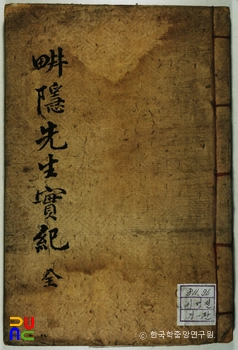 畊隱先生實紀 全
ⓒ 한국학중앙연구원